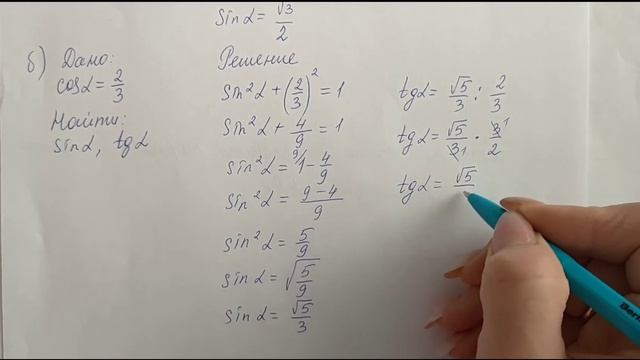 sinα = √3/2
б) Дано:
cosα = 2/3
Найти:
sinα, tgα
Решение
sin²α + (2/3)² = 1
sin²α + 4/9 = 1
sin²α = ⁹⁄1 - 4/9
sin²α = (9-4)/9
sin²α = 5/9
sinα = √(5/9)
sinα = √5/3
tgα = √5/3 : 2/3
tgα = √5/3₁ · 3¹/2
tgα = √5/